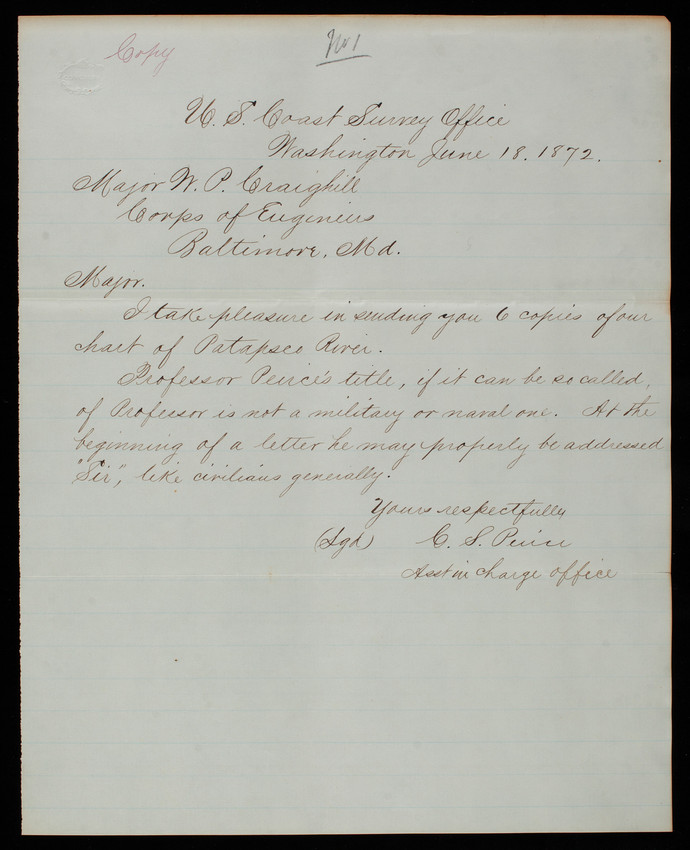 Copy
No 1
U. S. Coast Survey Office
Washington June 18. 1872.
Major W. P. Craighill
Corps of Engineers
Baltimore, Md.
Major.
I take pleasure in sending you 6 copies of our
chart of Patapsco River.
Professor Peirce's title, if it can be so called,
of Professor is not a military or naval one. At the
beginning of a letter he may properly be addressed
"Sir", like civilians generally.
Yours respectfully
(Sgd) C. S. Peirce
Asst in charge office